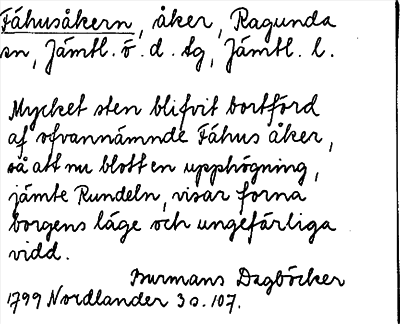 Fähusåkern, åker, Ragunda
sn, Jämtl. ö. d. tg, Jämtl. l.
Mycket sten blifvit bortförd
af ofvannämnde Fähus åker,
så att nu blott en upphögning,
jämte Rundeln, visar forna
borgens läge och ungefärliga
vidd.
Burmans Dagböcker
1799 Nordlander 3 o. 107.